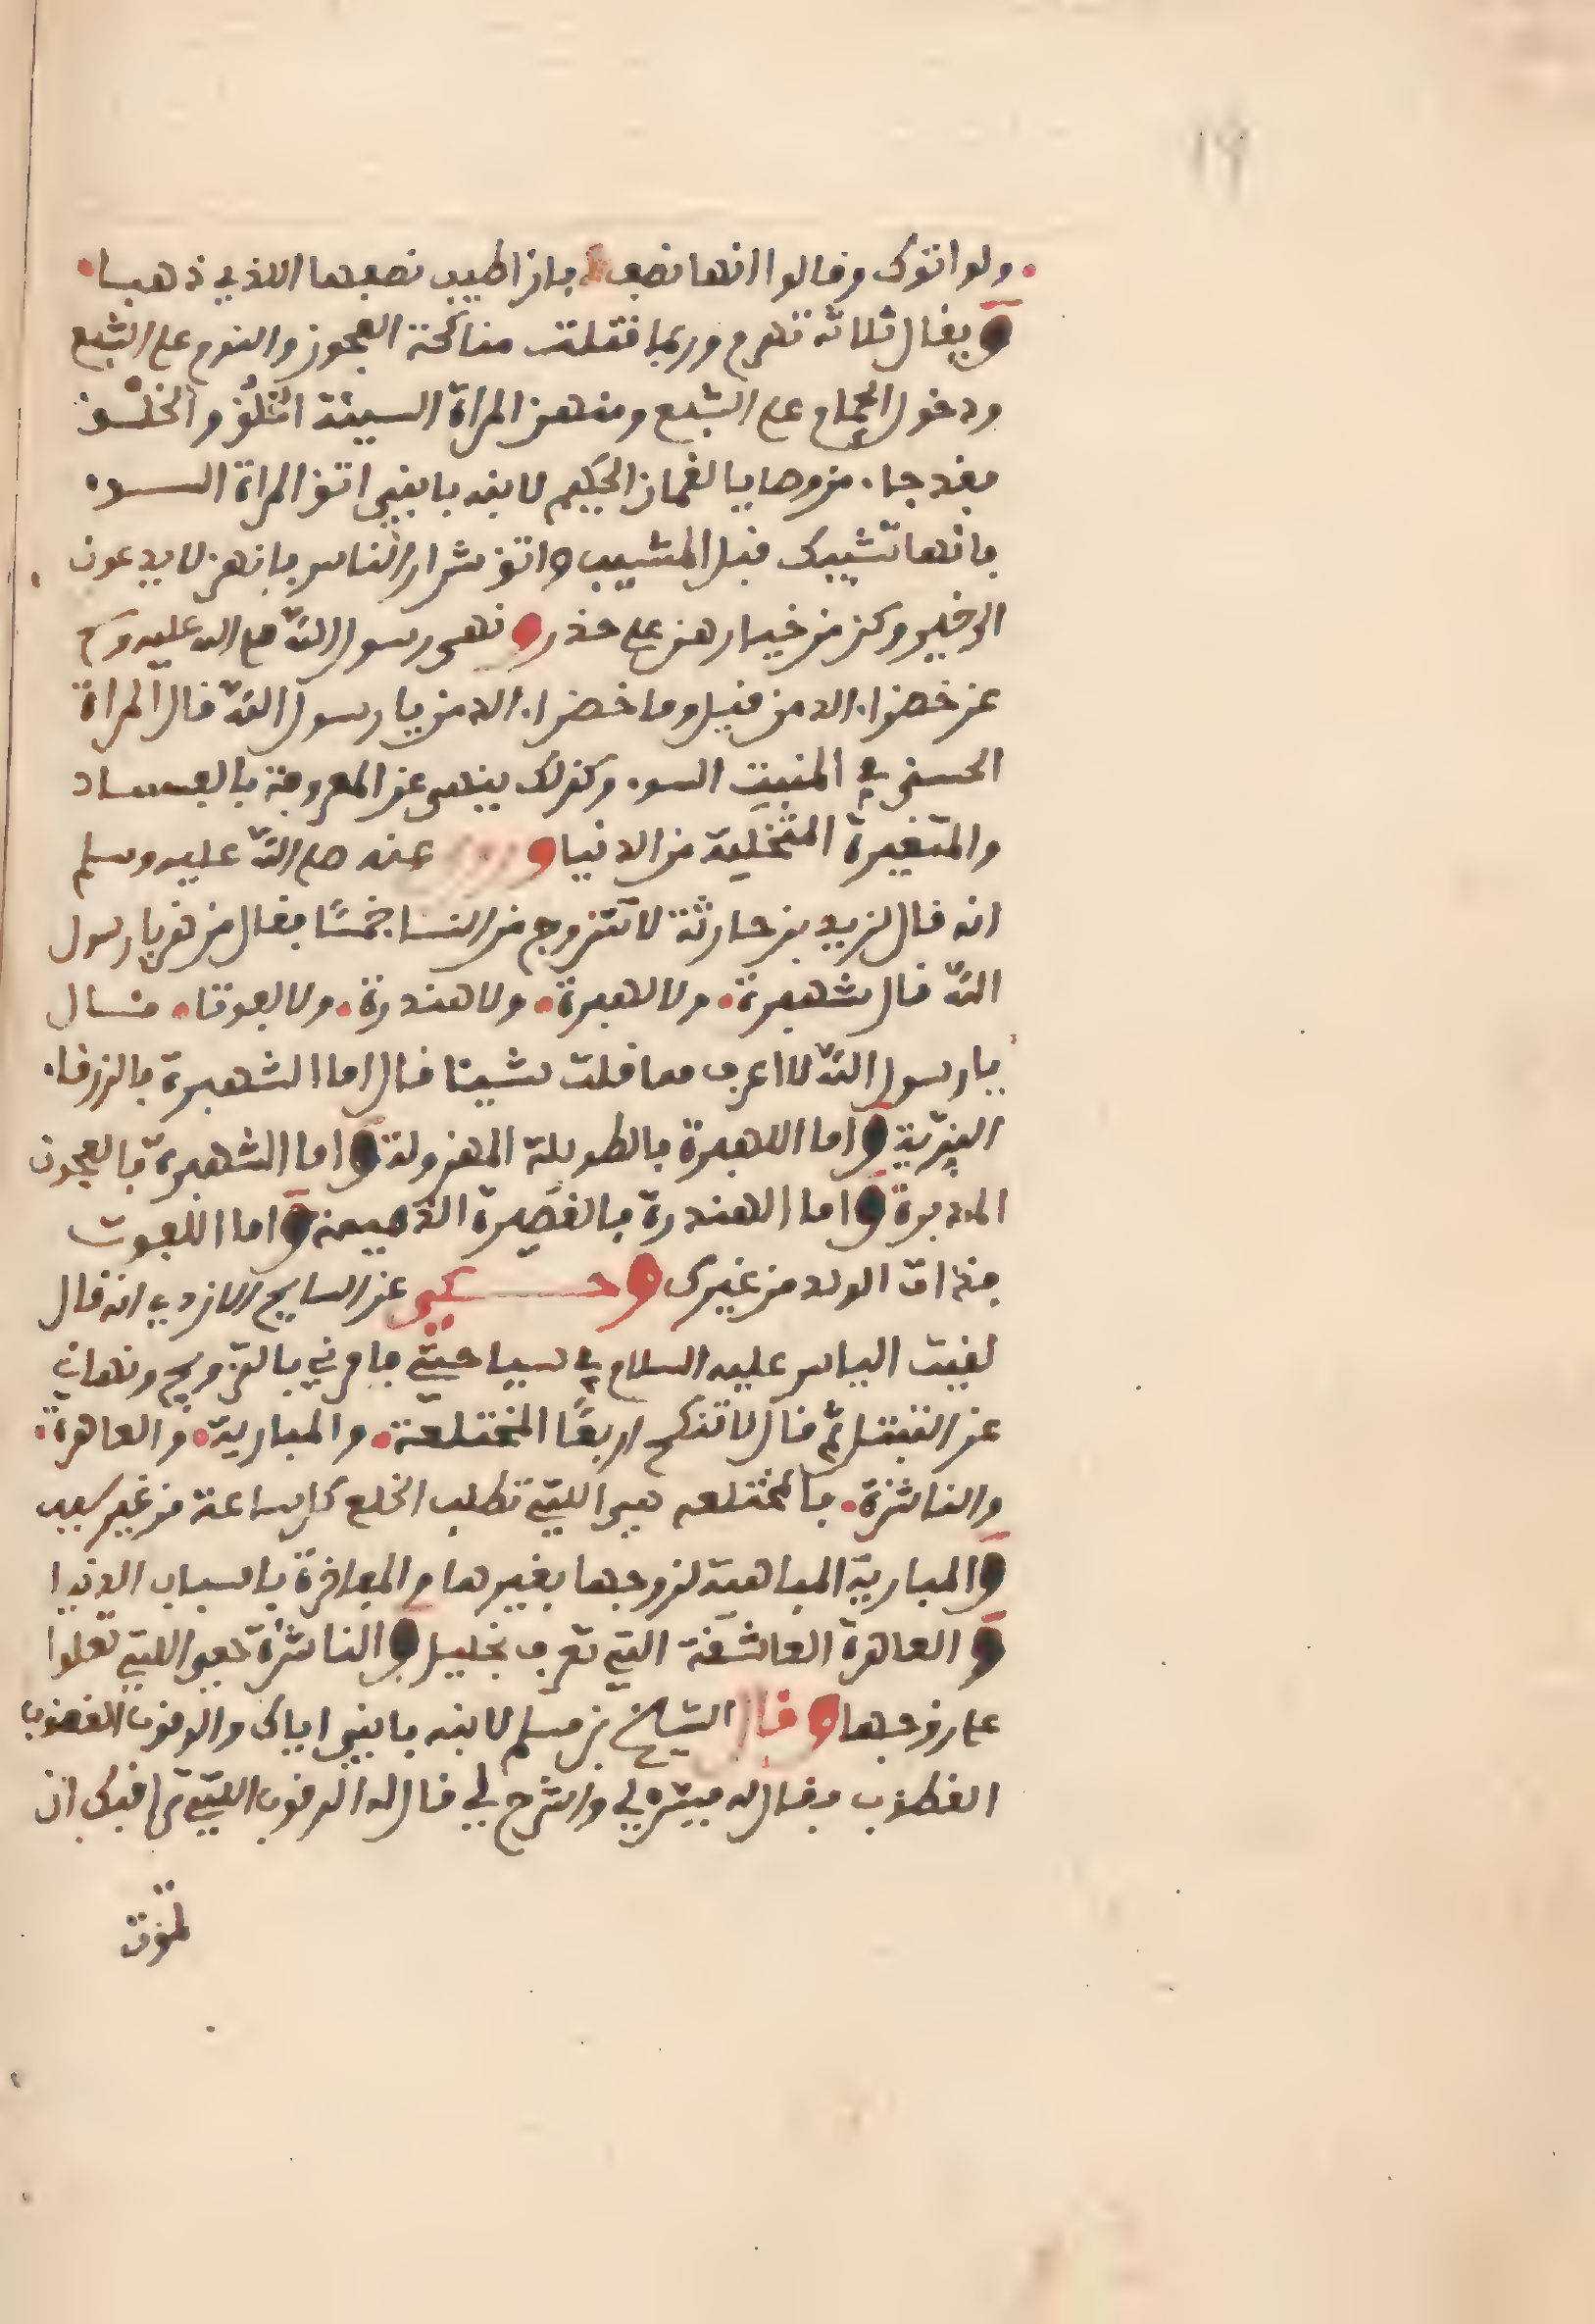 ١٩
ولو اتوك وقالوا انها نصف فان اطيب نصفها الذي ذهبا
ويقال ثلاثة تهرم وربما قتلت مناكحة العجوز والنوم على الشبع
ودخول الحمام على الشبع ومنهن المراة السيئة الخلُق والخلْق
فقد جا من وصايا لقمان الحكيم لابنه يا بني اتق المراة السوء
فانها تشيبك قبل المشيب واتق شرار الناس فانهن لا يدعون
الى خير وكن من خيارهن على حذر ونهى رسول الله صلى الله عليه وسلم
عن خضراء الدمن قيل وما خضراء الدمن يا رسول الله قال المراة
الحسنى في المنبت السوء وكذلك ينهى عن المعروفة بالفساد
والمتغيرة من الدنيا و عنه صلى الله عليه وسلم
انه قال لزيد بن حارثة لا تتزوج من النسا خمسًا فقال من هن يا رسول
الله قال شهبرة ولا لهبرة ولا هندرة ولا لفوتا فقال
يا رسول الله لا اعرف مما قلت شيئا قال اما الشهبرة فالزرقاء
البذية واما اللهبرة فالطويلة المهزولة واما الشهبرة فالعجوز
المدبرة واما الهندرة فالقصيرة الذميمة واما اللفوت
فذات الولد من غيرك وحكي عن السايح الازدي انه قال
لقيت الياس عليه السلام في سياحتي فامرني بالتزويج ونهاني
عن التبتل ثم قال لا تنكح اربعًا المختلعة والمبارية والعاهرة
والناشزة فالمختلعه هي اللتي تطلب الخلع كل ساعة من غير سبب
والمبارية المباهية لزوجها بغيرها والمفاخرة باسباب الدنيا
والعاهرة العاشقة التي تعرف بخليل والناشزة هي اللتي تعلوا
على زوجها وقال الشيخ بن مسلم لابنه يا بني اياك والرقوب الغضوب
القطوب فقال له فسّره لي واشرح لي قال له الرقوب اللتي تراقبك ان
تموت